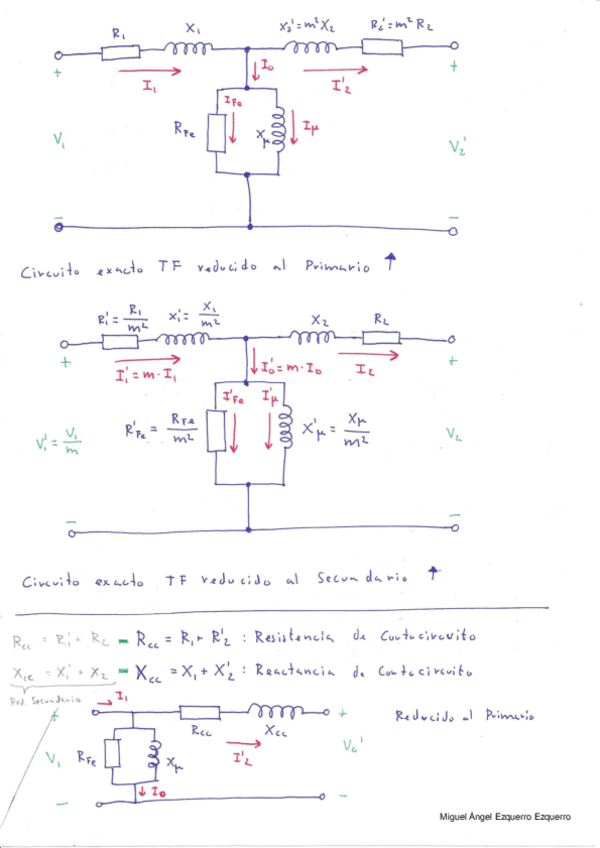 R₁ X₁ X₂'=m²X₂ R₂'=m²R₂
+ I₁ I₀ I'₂ +
V₁ R_Fe I_Fe X_μ I_μ V₂'
− −
Circuito exacto TF reducido al Primario ↑
R₁'=R₁/m² X₁'=X₁/m² X₂ R₂
+ I₁'=m·I₁ I₀'=m·I₀ I₂ +
V₁'=V₁/m R'_Fe=R_Fe/m² I'_Fe I'_μ X'_μ=X_μ/m² V₂
− −
Circuito exacto TF reducido al Secundario ↑
R_cc = R₁' + R₂ − R_cc = R₁ + R'₂ : Resistencia de Cortocircuito
X_cc = X₁' + X₂ − X_cc = X₁ + X'₂ : Reactancia de Cortocircuito
Red. Secundario
+ I₁ R_cc X_cc + Reducido al Primario
V₁ R_Fe X_μ I'₂ V₂'
− I₀ −
Miguel Ángel Ezquerro Ezquerro